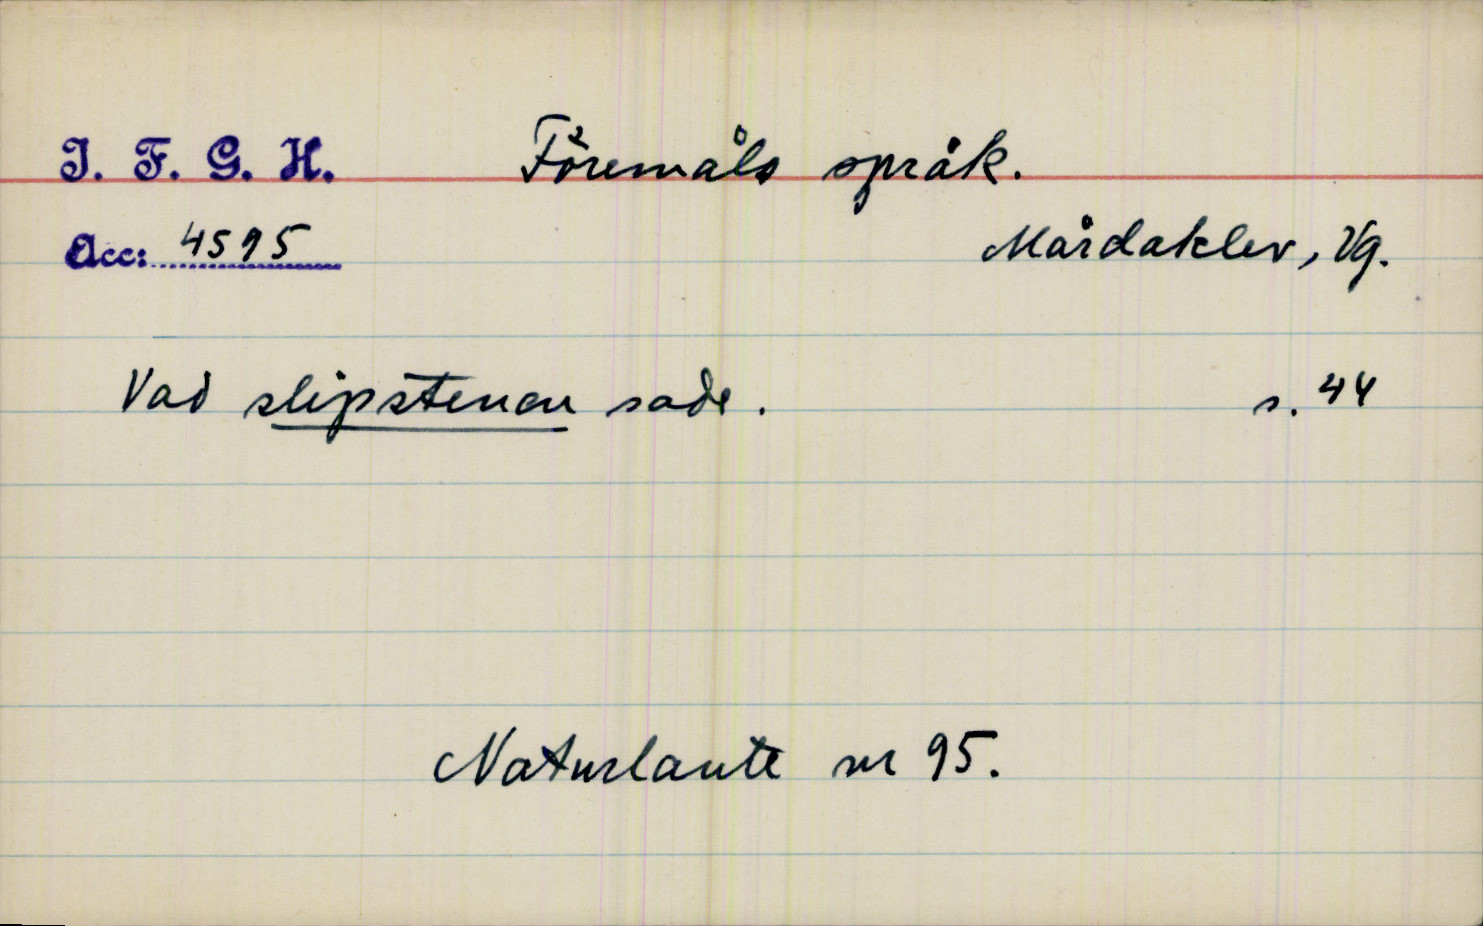 I. F. G. H. Föremåls språk.
Acc: 4595 Mårdaklev, Vg.
Vad slipstenen sade. s. 44
Naturlaute nr 95.